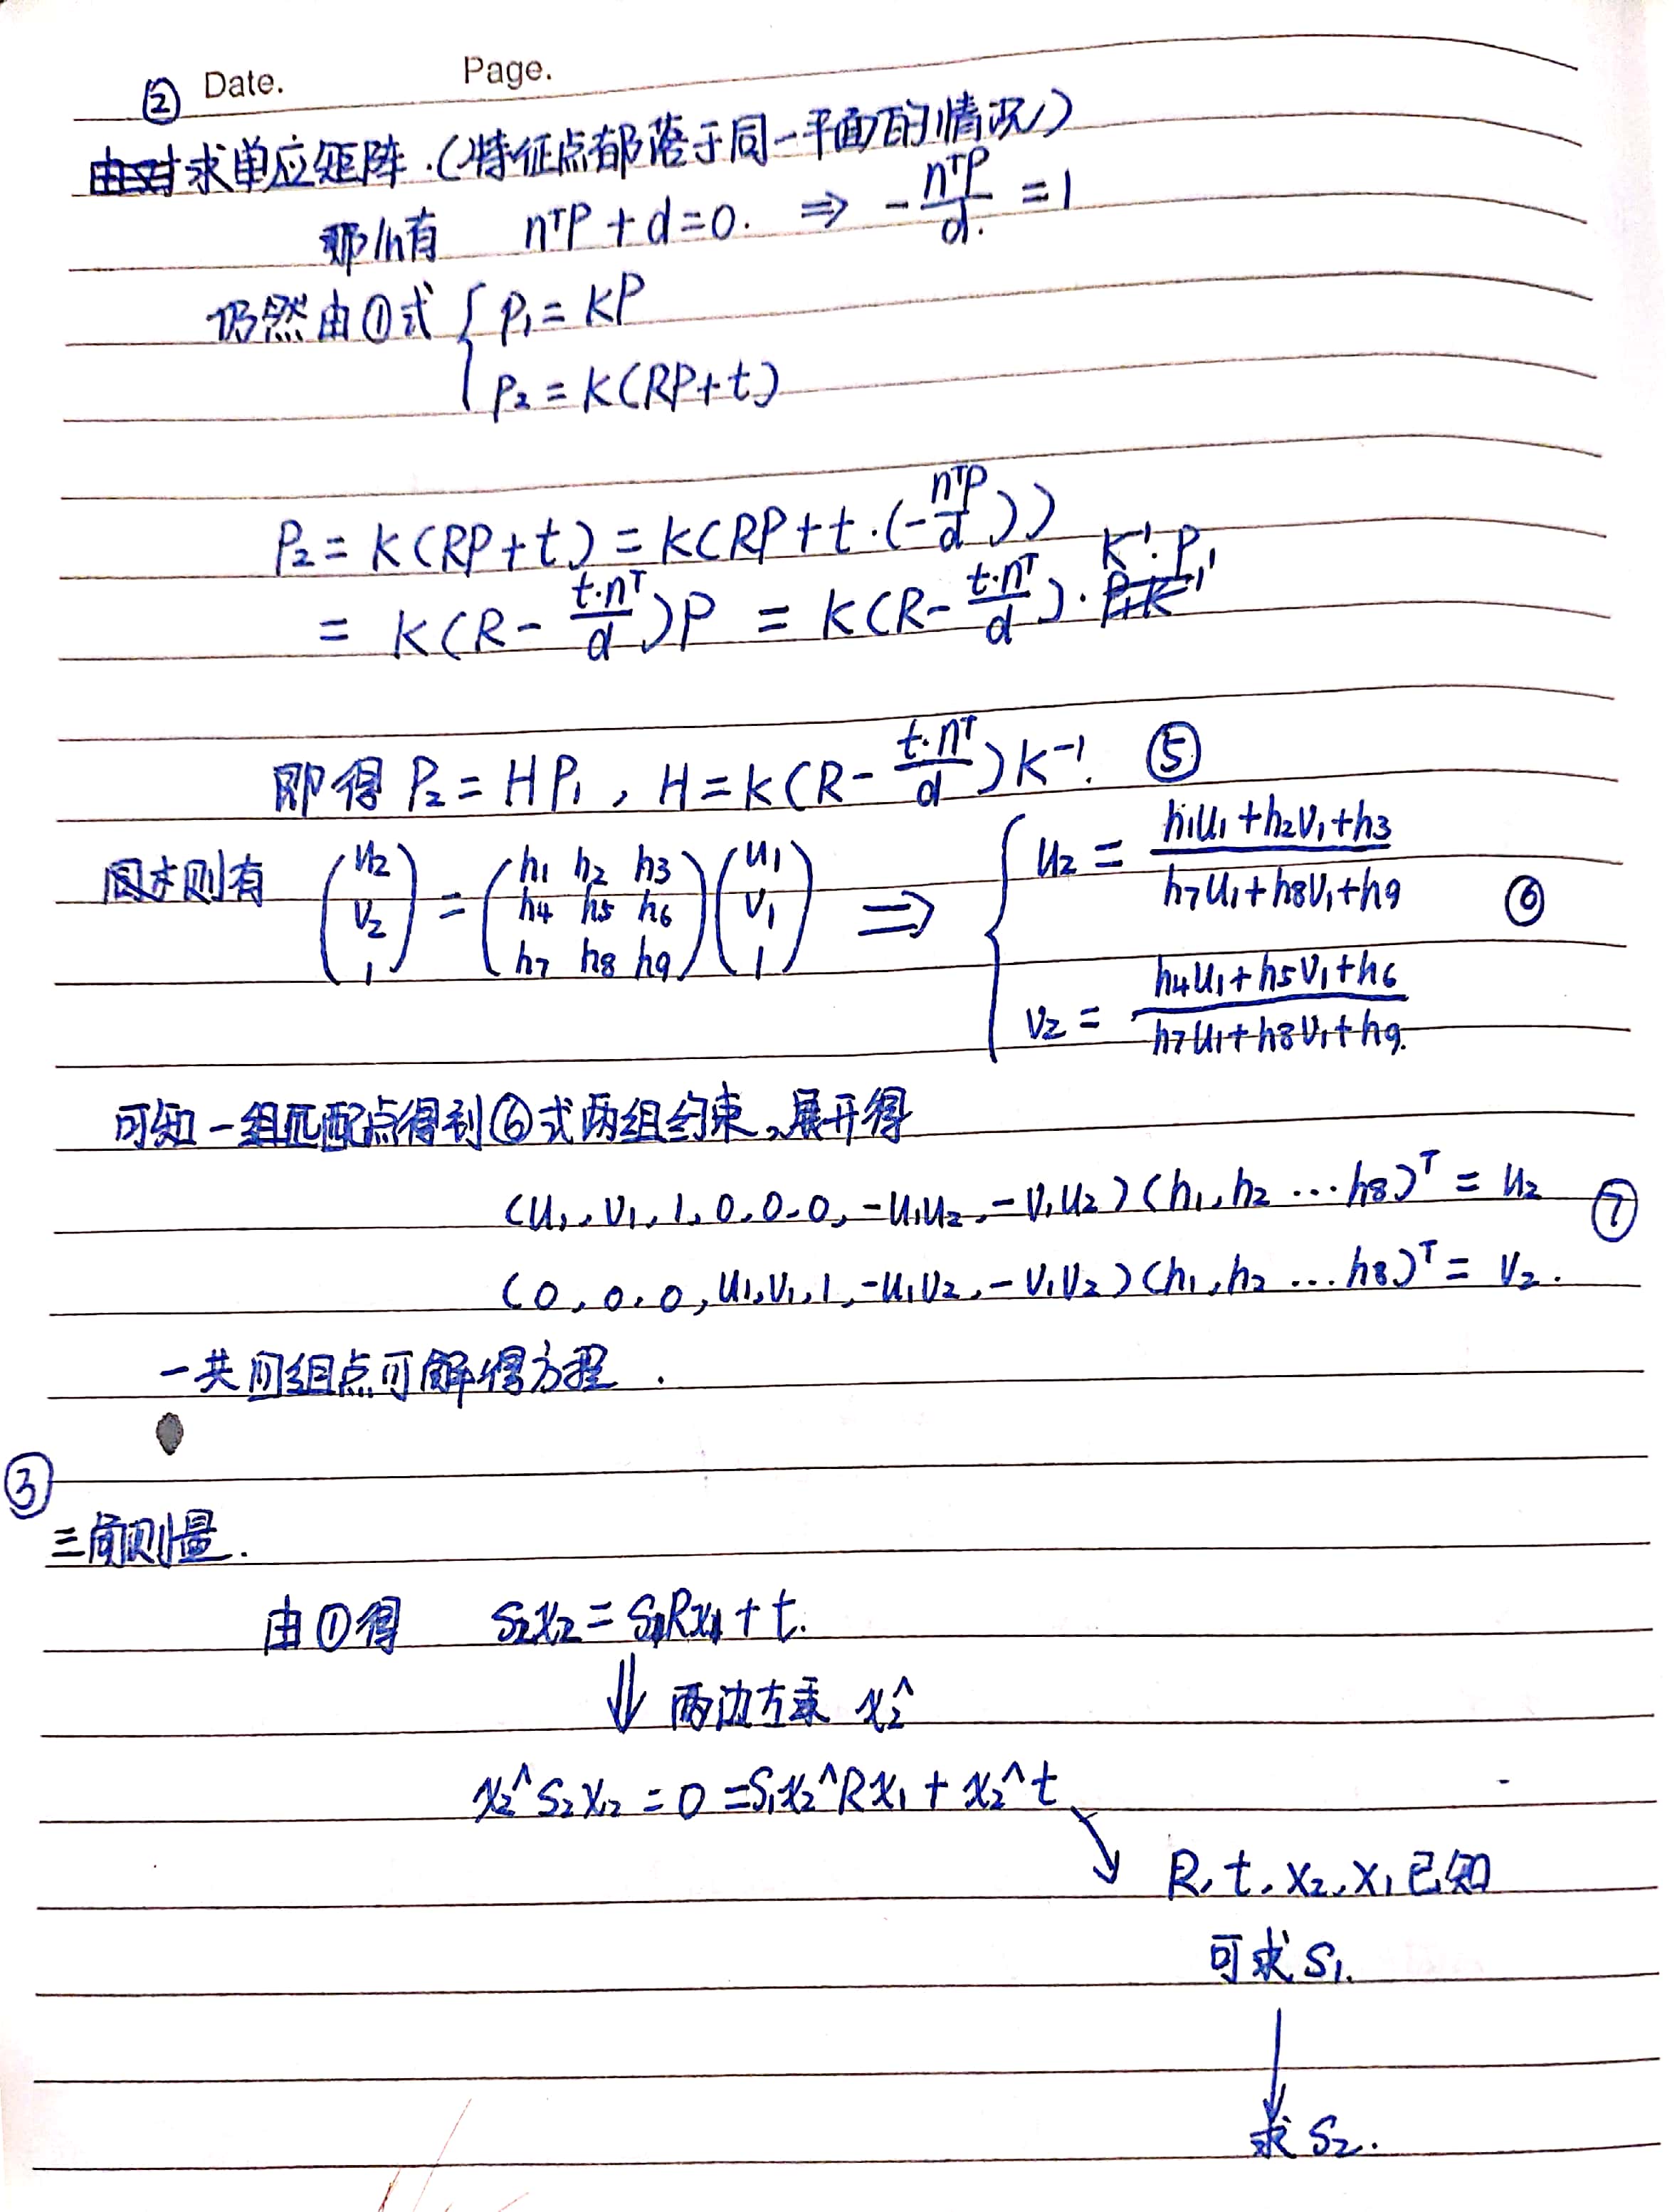 ② Date. Page.
求单应矩阵.(特征点都落于同一平面的情况)
那么有 nᵀP + d = 0. ⇒ -nᵀP/d = 1
仍然由①式 { p₁ = KP
p₂ = K(RP+t)
P₂ = K(RP+t) = K(RP+t·(-nᵀP/d))
= K(R - t·nᵀ/d)P = K(R - t·nᵀ/d)·K⁻¹·P₁
即得 P₂ = HP₁, H = K(R - t·nᵀ/d)K⁻¹. ⑤
则有 (u₂ v₂ 1) = (h₁ h₂ h₃ h₄ h₅ h₆ h₇ h₈ h₉)(u₁ v₁ 1) ⇒ { u₂ = (h₁u₁+h₂v₁+h₃)/(h₇u₁+h₈v₁+h₉) ⑥
v₂ = (h₄u₁+h₅v₁+h₆)/(h₇u₁+h₈v₁+h₉).
可知一组匹配点得到⑥式两组约束,展开得
(u₁, v₁, 1, 0, 0, 0, -u₁u₂, -v₁u₂)(h₁, h₂ … h₈)ᵀ = u₂ ⑦
(0, 0, 0, u₁, v₁, 1, -u₁v₂, -v₁v₂)(h₁, h₂ … h₈)ᵀ = v₂.
一共四组点可解得方程.
③
三角测量.
由①得 S₂x₂ = S₁Rx₁ + t.
⇓ 两边左乘 x₂^
x₂^S₂x₂ = 0 = S₁x₂^Rx₁ + x₂^t
↘ R, t, x₂, x₁已知
可求S₁.
↓
求S₂.